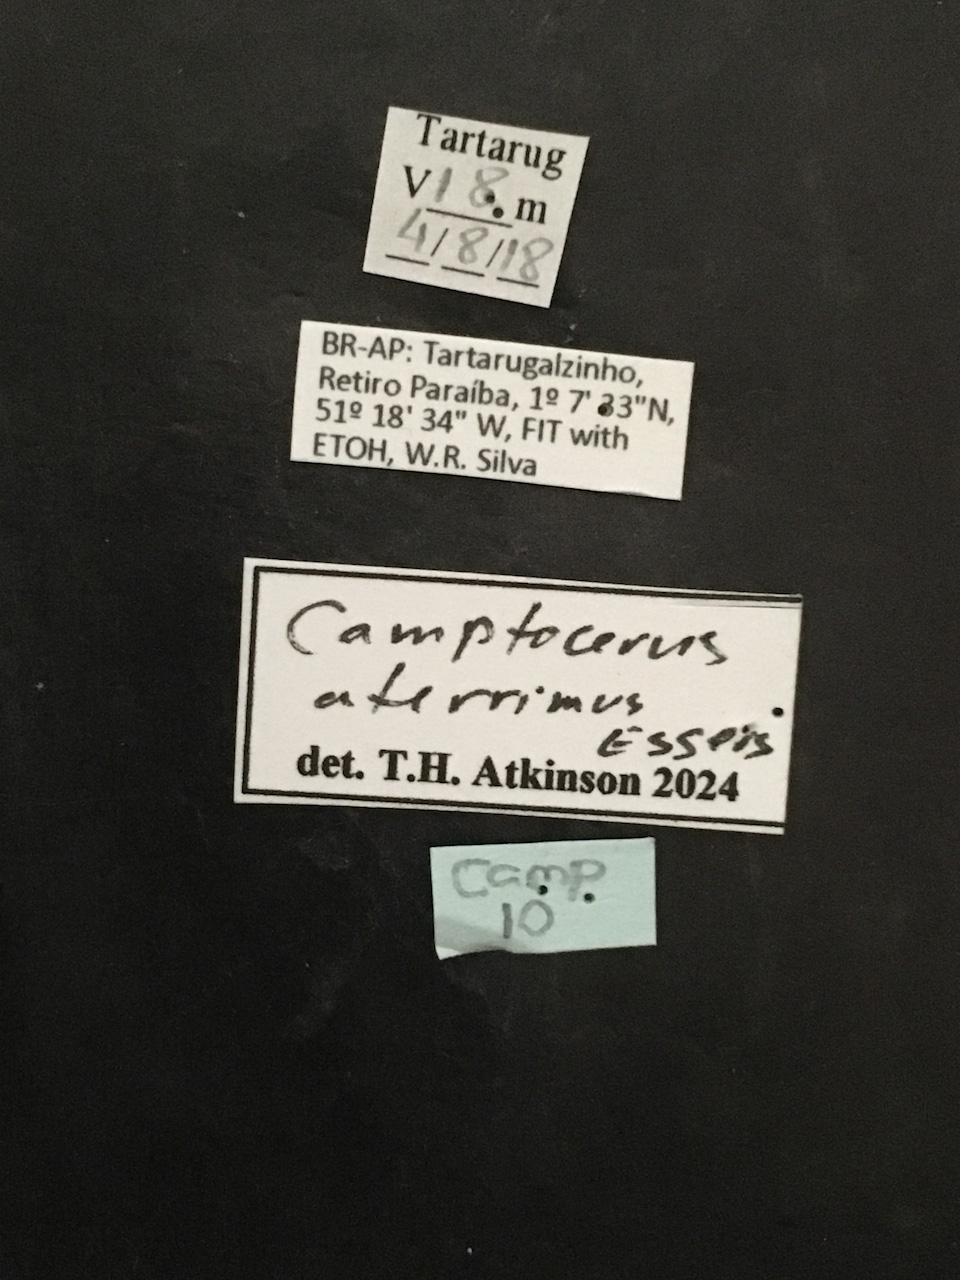 Tartarug
V18.m
4/8/18
BR-AP: Tartarugalzinho,
Retiro Paraíba, 1º 7' 33"N,
51º 18' 34" W, FIT with
ETOH, W.R. Silva
Camptocerus
aterrimus
det. T.H. Atkinson 2024
Camp.
10